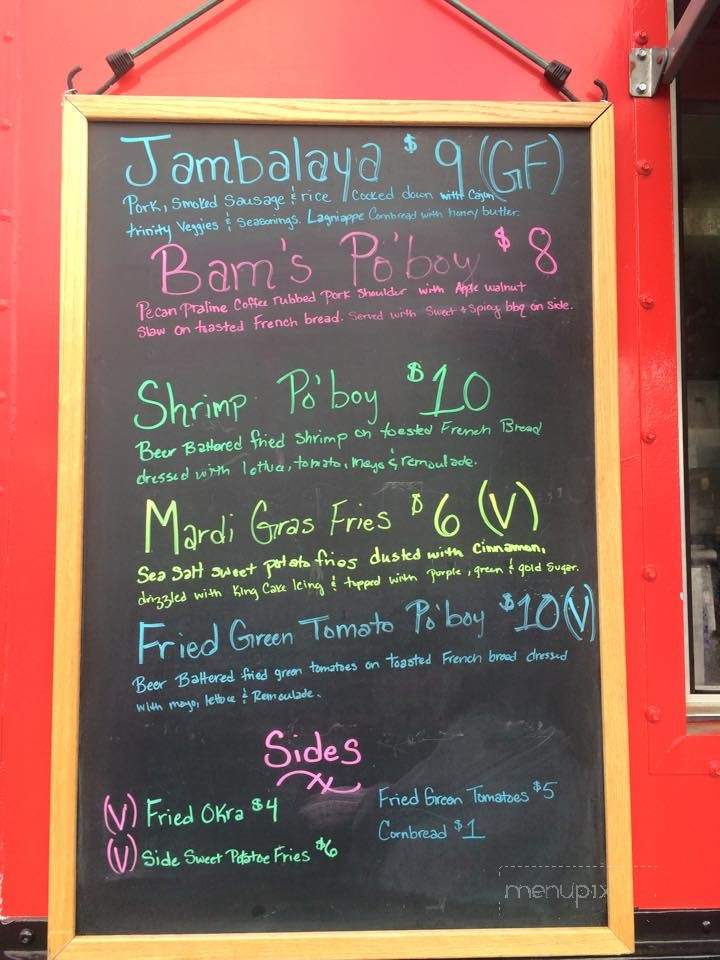 Jambalaya $9 (GF)
Pork, Smoked Sausage & rice cooked down with Cajun
trinity veggies & seasonings. Lagniappe Cornbread with honey butter.
Bam's Po'boy $8
Pecan Praline Coffee rubbed Pork Shoulder with Apple walnut
Slaw on toasted French bread. Served with Sweet & Spicy bbq on side.
Shrimp Po'boy $10
Beer Battered fried shrimp on toasted French Bread
dressed with lettuce, tomato, mayo & remoulade.
Mardi Gras Fries $6 (V)
Sea Salt sweet potato fries dusted with cinnamon,
drizzled with King Cake Icing & topped with purple, green & gold Sugar.
Fried Green Tomato Po'boy $10 (V)
Beer Battered fried green tomatoes on toasted French bread dressed
with mayo, lettuce & Remoulade.
Sides
(V) Fried Okra $4
Fried Green Tomatoes $5
(V) Side Sweet Potatoe Fries $6
Cornbread $1
menupix